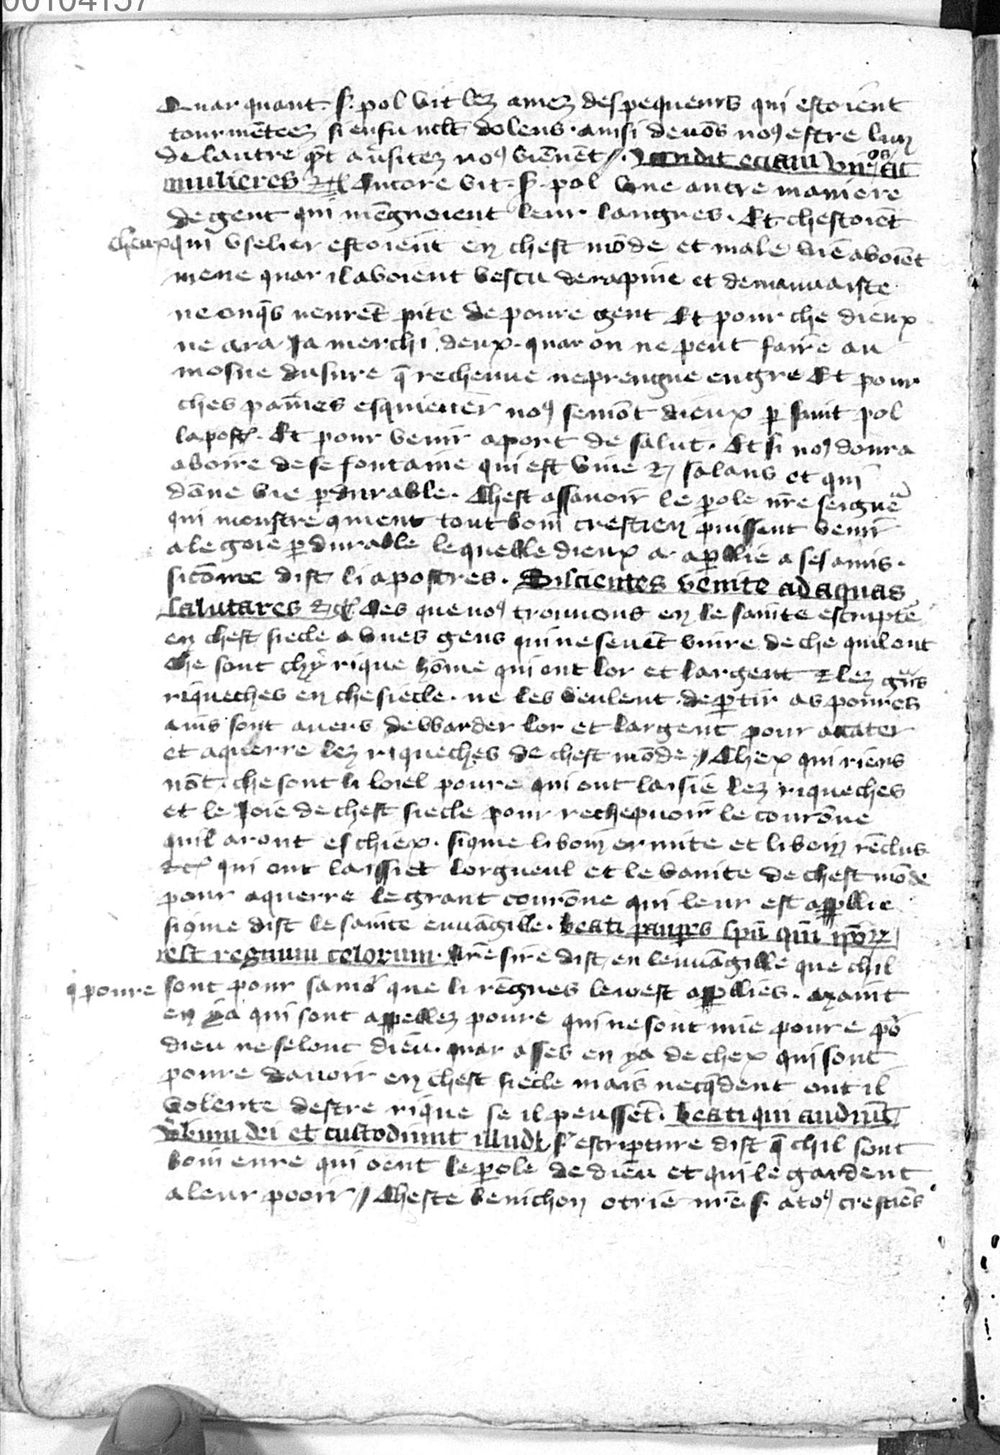 00104157
Quar quant . s. pol vit lez amez des pequeurs qui estoient
tourmẽteez si en fu dolens . ainsi devõs noꝯ estre lun
de lautre q̃t aũsitez noꝯ viẽnẽt // . vidit eciam viros et
mulieres Encore vit . s. pol une autre maniere
de gent qui mẽgnoient leur langues . Et chestoiẽt
cheux qui uselier estoient en chest mõde et male vie avoiẽt
mene quar il avoient vescu de rapine et de mauvaiste
ne onq̃s neurẽt pite de poure gent Et pour che dieux
ne ara ja merchi deux . quar on ne peut faire au
mosne dusure q̃ rechevue ne prengne en gre Et pour
ches paĩnes esquiever noꝯ semõt dieux p̱ saint pol
lapost̃ . Et pour venir a port de salut . Et si noꝯ donra
a boire de se fontaine qui est vive et salans et qui
dõne vie p̱durable . Chest assavoir le p̱ole nr̃e seigñe
qui monstre qment tout boin crestien puissent venir
a le goie p̱durable lequelle dieux a ap̱llie a ses amis .
sicõme dist li apostres . Sicientes venite ad aquas
salutares Des que noꝯ trouvons en le sainte escriptẽ
en chest siecle a unes gens qui ne sevẽt vivre de che quil ont
che sont chy rique hõme qui ont lor et largent et lez gñs
riqueches en che siecle . ne les veulent dep̱tir as poures
ains sont avers de warder lor et largent pour acater
et aquerre lez riqueches de chest mõde // Chex qui riens
nõt . che sont li loiel poure qui ont laisie lez riqueches
et le joie de chest siecle pour rechepvoir le courõne
quil aront es chiex . siqme li boin ermite et li boin rẽclus
qui ont laissiet lorgueul et le vanite de chest mõde
pour aquerre le grant courõne qui leur est appllie
siqme dist le sainte euvãgille . beati paup̱es sp̃u qm̃ ip̃oꝝ
est regnum celorum . Nr̃e sire dist en leuvãgille que chil
q poure sont pour samõ que li rẽgnes lewest appllies . maint
en ya qui sont appellez poure qui ne sont mie poure põ
dieu ne selonc dieu . quar asses en ya de chex qui sont
poure davoir en chest siecle mais neq̃dent ont il
volente destre rique se il peussẽt . beati qui audiũt
v̾bum dei et custodiunt illud lescripture dist q̃ chil sont
boin eure qui oent le p̱ole de dieu et qui le gardent
a leur pooir // Cheste benichon otrie nr̃e s. a toꝯ crestiẽs